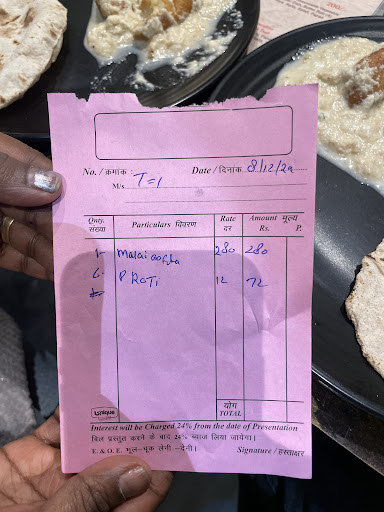 200/-
No. / क्रमांक T=1 Date / दिनांक 8/12/24
M/s.
Qnty. संख्या Particulars विवरण Rate दर Amount मूल्य Rs. P.
1- Malai kofta 280 280
6- P Roti 12 72
Unique योग TOTAL
Interest will be Charged 24% from the date of Presentation
बिल प्रस्तुत करने के बाद 24% ब्याज लिया जायेगा।
E. & O.E. भूल-चूक लेनी-देनी। Signature / हस्ताक्षर